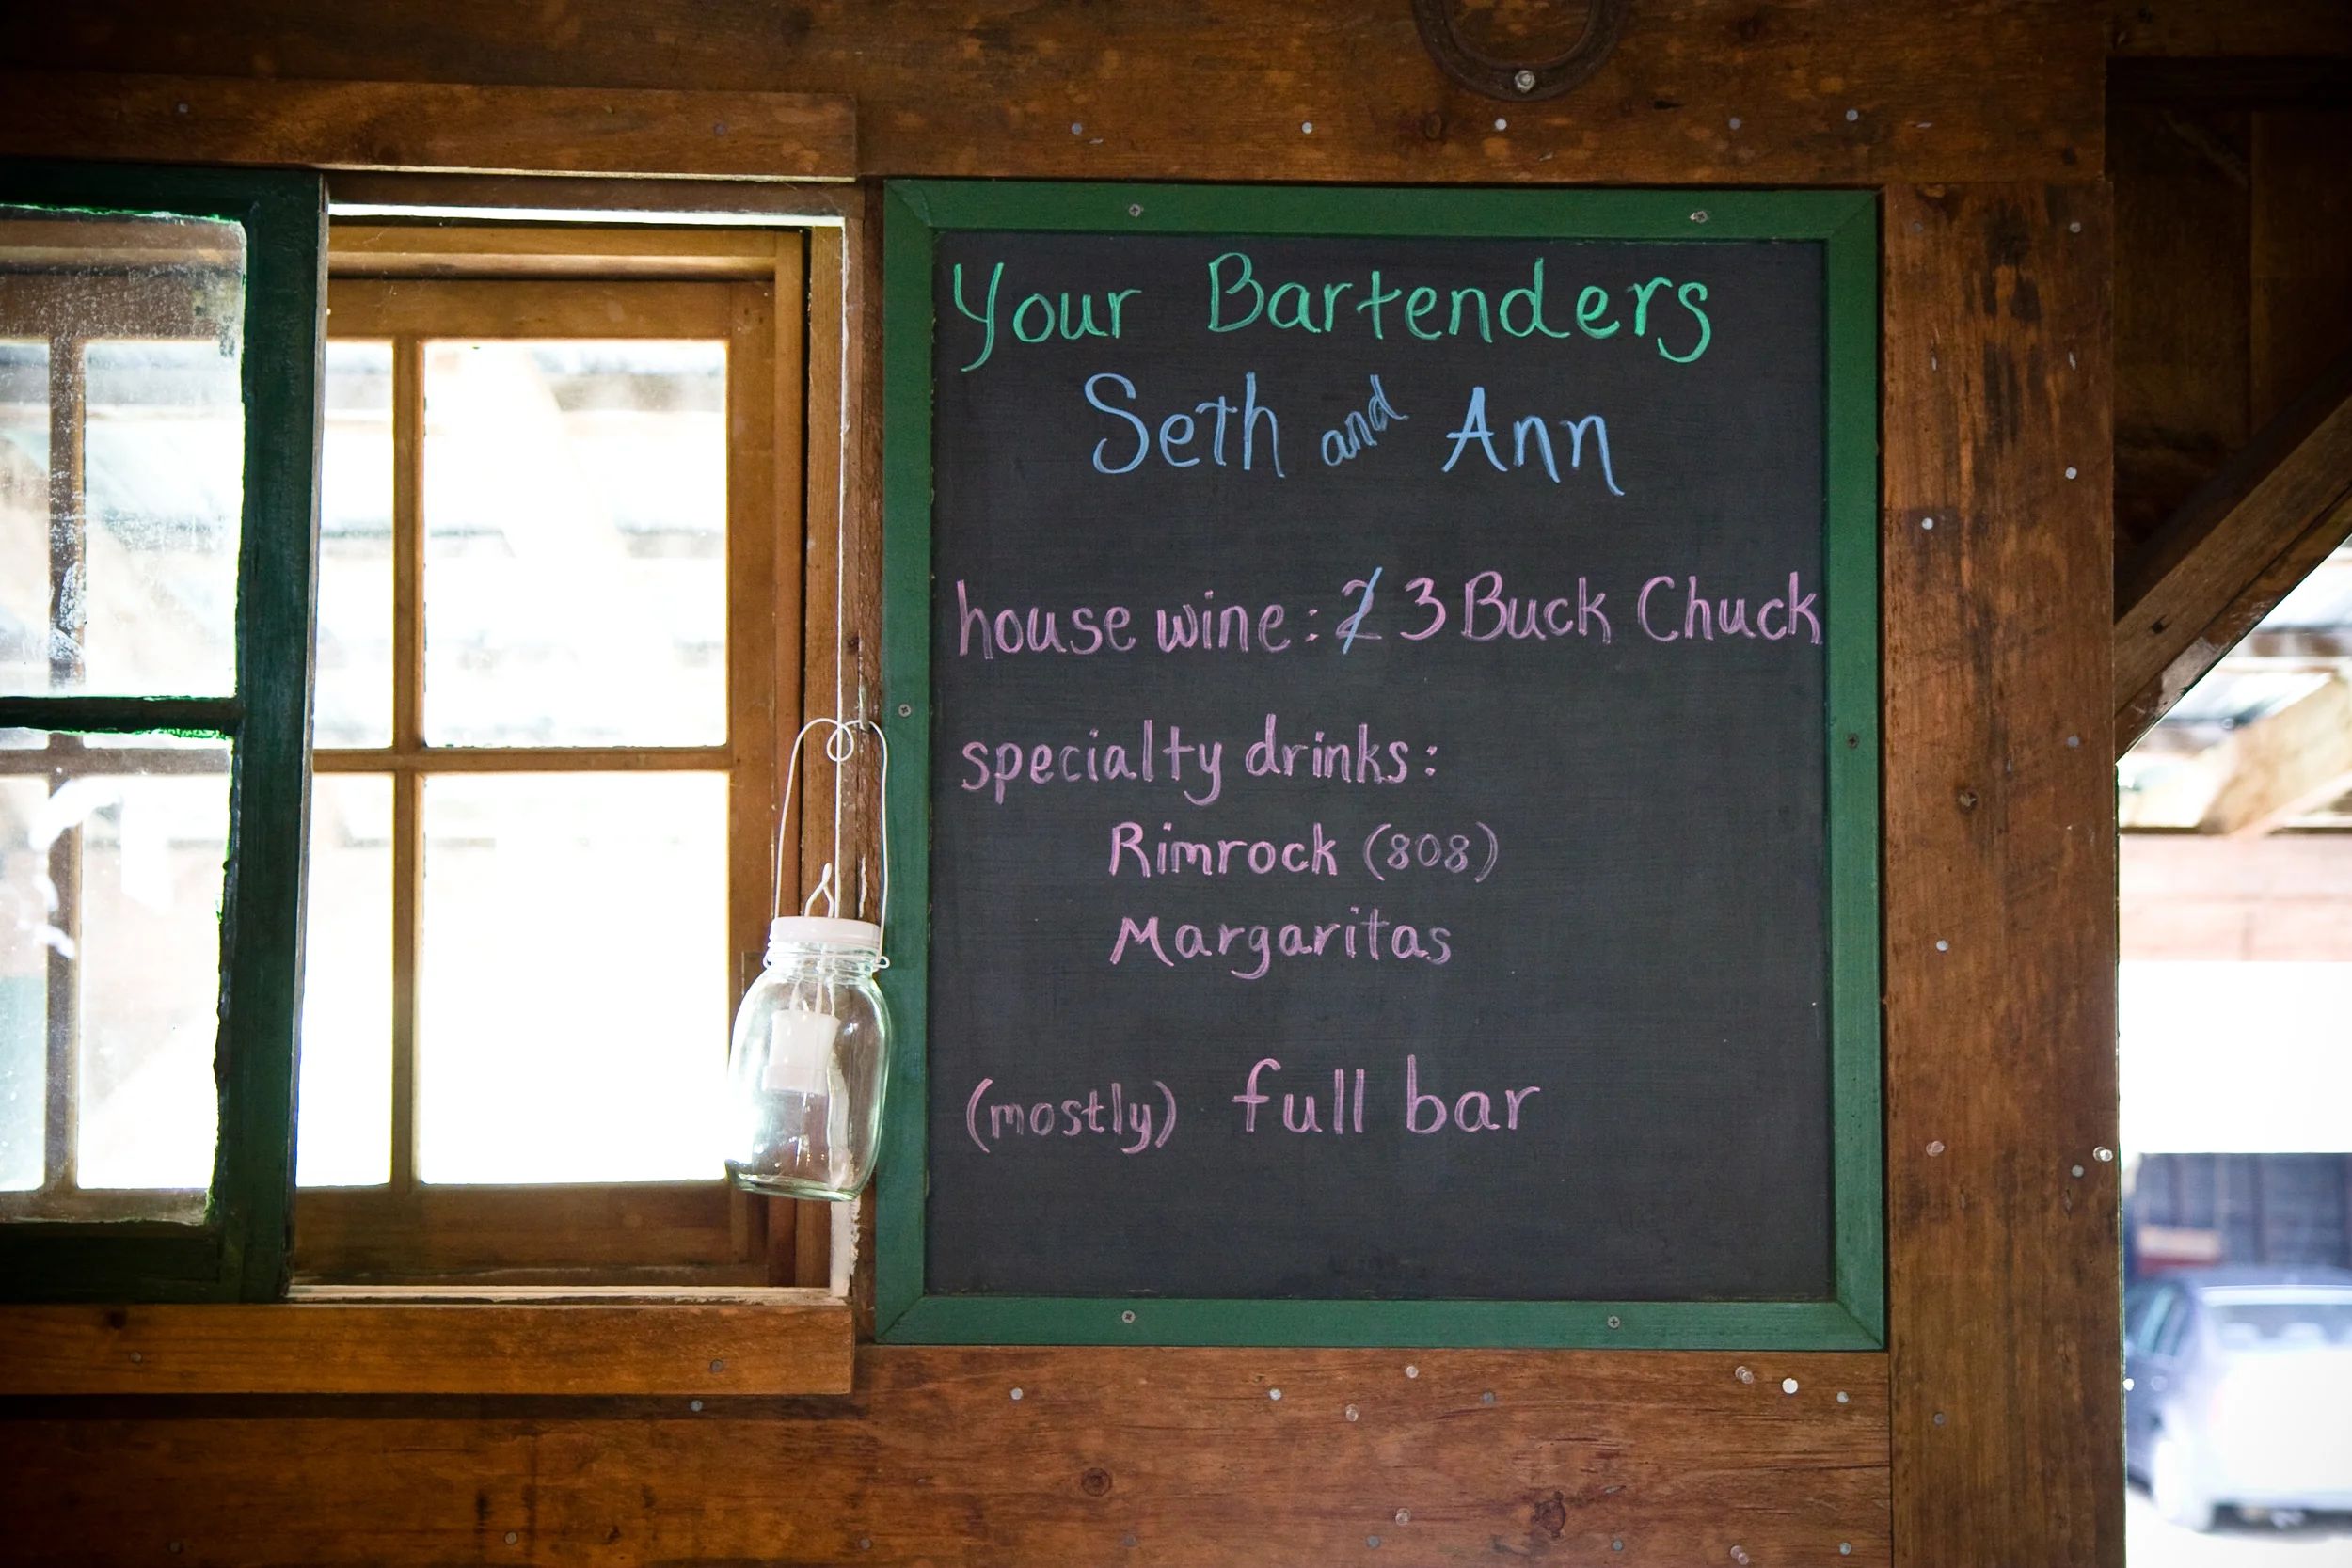 Your Bartenders
Seth and Ann
house wine: 2 3 Buck Chuck
specialty drinks:
Rimrock (808)
Margaritas
(mostly) full bar